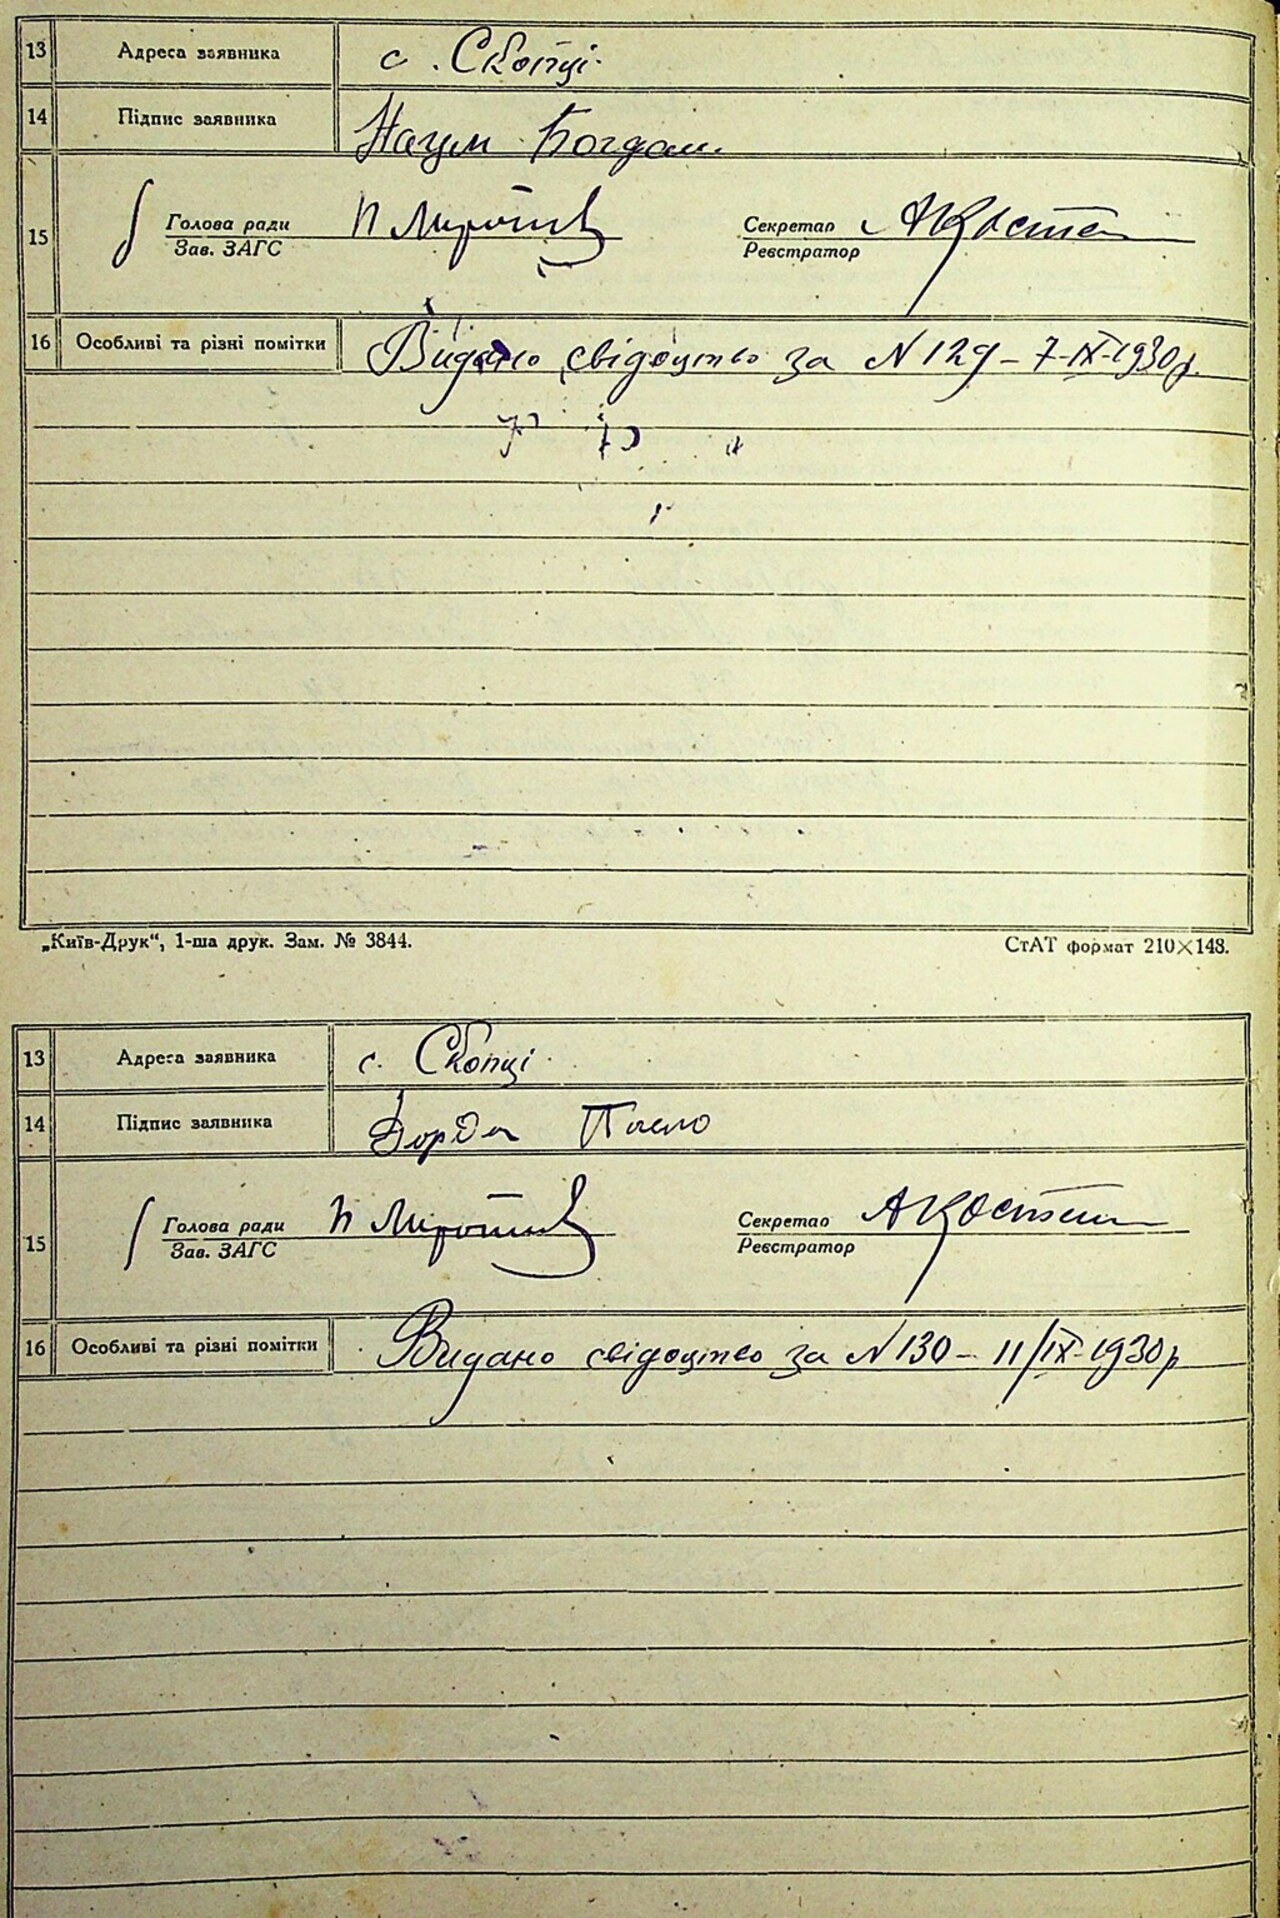 13 Адреса заявника с. Скопці.
14 Підпис заявника Наум Богдан
15 Голова ради Секретар
Зав. ЗАГС Реєстратор
16 Особливі та різні помітки Видано свідоцтво за N 129 - 7-IX-1930р.
„Київ-Друк“, 1-ша друк. Зам. № 3844. СтАТ формат 210×148.
13 Адреса заявника с. Скопці.
14 Підпис заявника
15 Голова ради Секретар
Зав. ЗАГС Реєстратор
16 Особливі та різні помітки Видано свідоцтво за N 130 - 11/IX-1930р